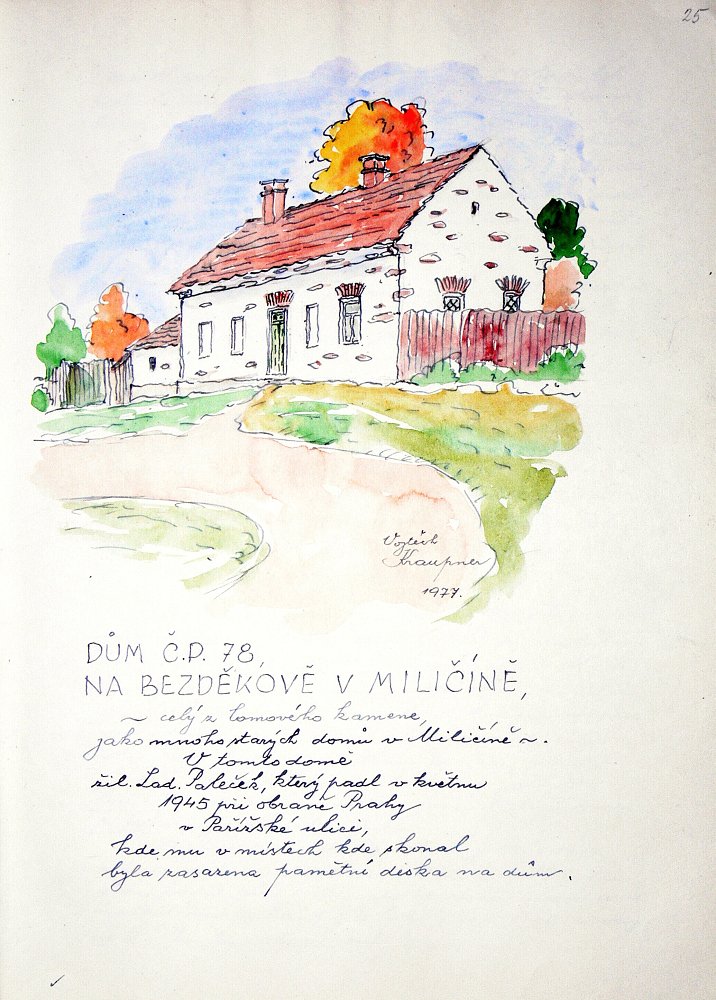 25
Vojtěch
Kraupner
1977.
DŮM Č.P. 78,
NA BEZDĚKOVĚ V MILIČÍNĚ,
~ celý z lomového kamene,
jako mnoho starých domů v Miličíně ~.
V tomto domě
žil. Lad. Paleček, který padl v květnu
1945 při obraně Prahy
v Pařížské ulici,
kde mu v místech kde skonal
byla zasazena pamětní deska na dům.